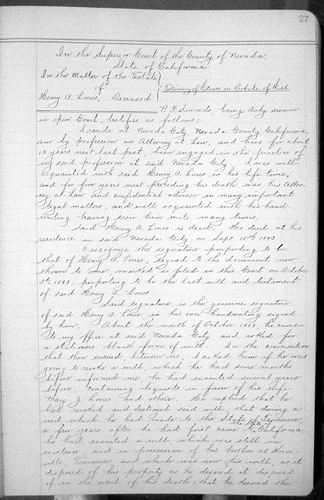 27
In the Superior Court of the County of Nevada
State of California
In the Matter of the Estate
of
Testimony of Witness on Probate of Will
Henry A. Lones, Deceased
C. F. Simonds being duly sworn
in open Court, testifies as follows:
I reside at Nevada City Nevada County, California,
am by profession an Attorney at Law, and have for about
years next last past been engaged in the practice of
my said profession at said Nevada City. I was well
acquainted with said Henry A. Lones in his life time,
and for few years next preceding his death was his Attor-
ney at Law and confidential adviser in many important
legal matters, and well acquainted with his hand-
writing having seen him write many times.
Said Henry A. Lones is dead. He died at his
residence in said Nevada City on Sept.
I recognize the signature purporting to be
that of Henry A. Lones, signed to the document now
shown to me, marked as filed in this Court on October
purporting to be the last will and testament
of said Henry A. Lones
Said signature is the genuine signature
of said Henry A. Lones in his own handwriting signed
by him. About the month of October he came
to my office at said Nevada City and asked for
a stationers blank form of will. In the conversation
that then ensued between us, I asked him if he was
going to revoke a will, which he had some months
before informed me he had executed several years
before containing bequests in favor of his wife
Mary J. Lones and others. He replied that he
had revoked and destroyed said will, that during a
visit which he had made to the State of Tennessee,
a few years after he had first came to California
he had executed a will which was still in
existence, and in possession of his brother at
Tennessee and which was now his will as it
disposed of his property as he desired it disposed
of in the event of his death; that he desired the